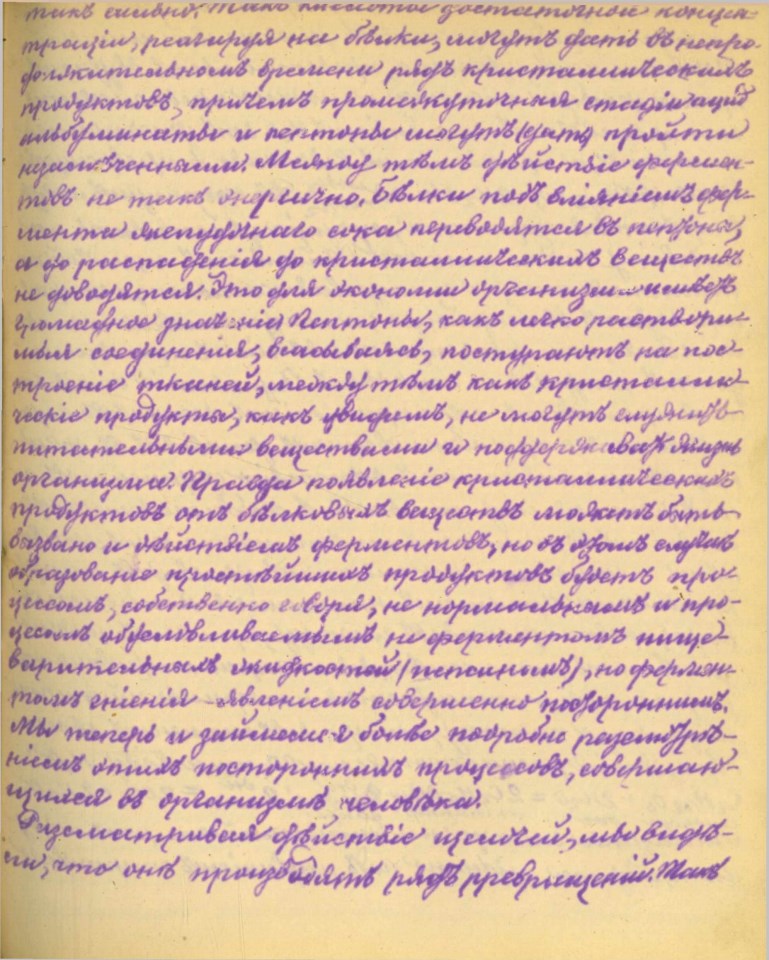 такъ сильно. Такъ кислоты достаточной концен-
трацiи, реагируя на бѣлки, могутъ дать въ непро-
должительномъ времени рядъ кристаллическихъ
продуктовъ, причемъ промежуточная стадiи ацид
альбуминаты и пептоны могутъ (дать) пройти
незамѣченными. Между тѣмъ дѣйствiе фермен-
товъ не такъ энергично. Бѣлки подъ влiянiемъ фер-
мента желудочнаго сока переводятся въ пептоны,
а до распаденiя до кристаллическихъ веществъ
не доводятся. Это для экономiи организма имѣетъ
громадное значенiе. Пептоны, какъ легко раствори-
мыя соединенiя, всасываясь, поступаютъ на пос-
троенiе тканей, между тѣмъ какъ кристалли-
ческiе продукты, какъ увидимъ, не могутъ служить
питательными веществами и поддерживать жизнь
организма. Правда появленiе кристаллическихъ
продуктовъ отъ бѣлковыхъ веществъ можетъ быть
вызвано и дѣйствiемъ ферментовъ, но въ этомъ случаѣ
образованiе простѣйшихъ продуктовъ будетъ про-
цессомъ, собственно говоря, не нормальнымъ и про-
цессомъ обусловливаемымъ не ферментомъ пище-
варительныхъ жидкостей (пепсиномъ), но фермен-
томъ гнiенiя – явленiемъ совершенно постороннимъ.
Мы теперь и займемся болѣе подробно разсмотрѣ-
нiемъ этихъ постороннихъ процессовъ, совершаю-
щихся въ организмѣ человѣка.
Разсматривая дѣйствiе щелочей, мы видѣ-
ли, что онѣ производятъ рядъ превращенiй. Такъ